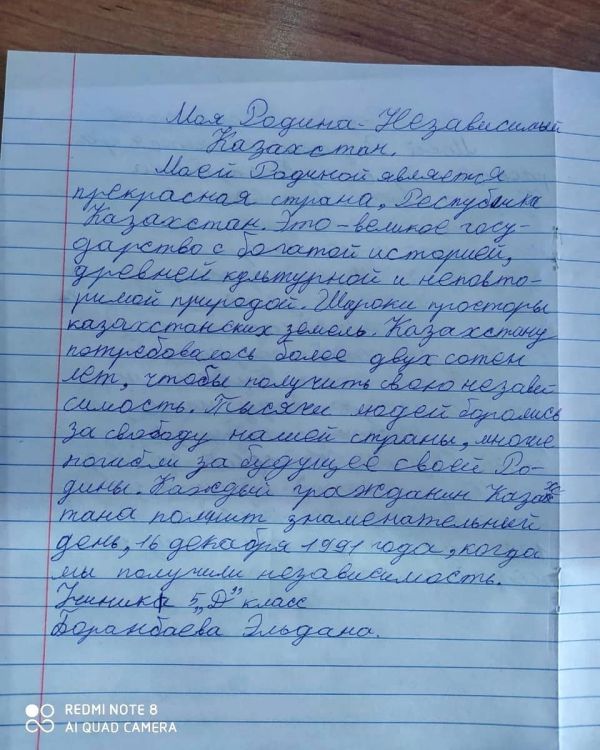 Моя Родина - Независимый
Казахстан.
Моей Родиной является
прекрасная страна, Республика
Казахстан. Это - великое госу-
дарство с богатой историей,
древней культурной и неповто-
римой природой. Широки просторы
казахстанских земель. Казахстану
потребовалось более двух сотен
лет, чтобы получить свою незави
симость. Тысячи людей боролись
за свободу нашей страны, многие
погибли за будущее своей Ро-
дины. Каждый гражданин Казахс
тана помнит знаменательный
день, 16 декабря 1991 года, когда
мы получили независимость.
5 "Д" класс
Боранбаева Эльдана.
REDMI NOTE 8
AI QUAD CAMERA